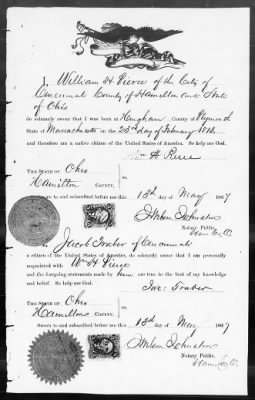 I, William H. Pierce of the City of
Cincinnati County of Hamilton and State
of Ohio
do solemnly swear that I was born at Hingham County of Plymouth
State of Massachusetts on the day of February
and therefore am a native citizen of the United States of America. So help me God.
Wm H. Pierce
THE STATE OF Ohio
Hamilton COUNTY,
Sworn to and subscribed before me this 13th May 1867
Notary Public.
I, Jacob Traber of Cincinnati
a citizen of the United States of America, do solemnly swear that I am personally
acquainted with W H Pierce
and the foregoing statements made by him are true to the best of my knowledge
and belief. So help me God.
Jac: Traber
THE STATE OF Ohio
Hamilton COUNTY,
Sworn to and subscribed before me this 13th May 1867
Notary Public.